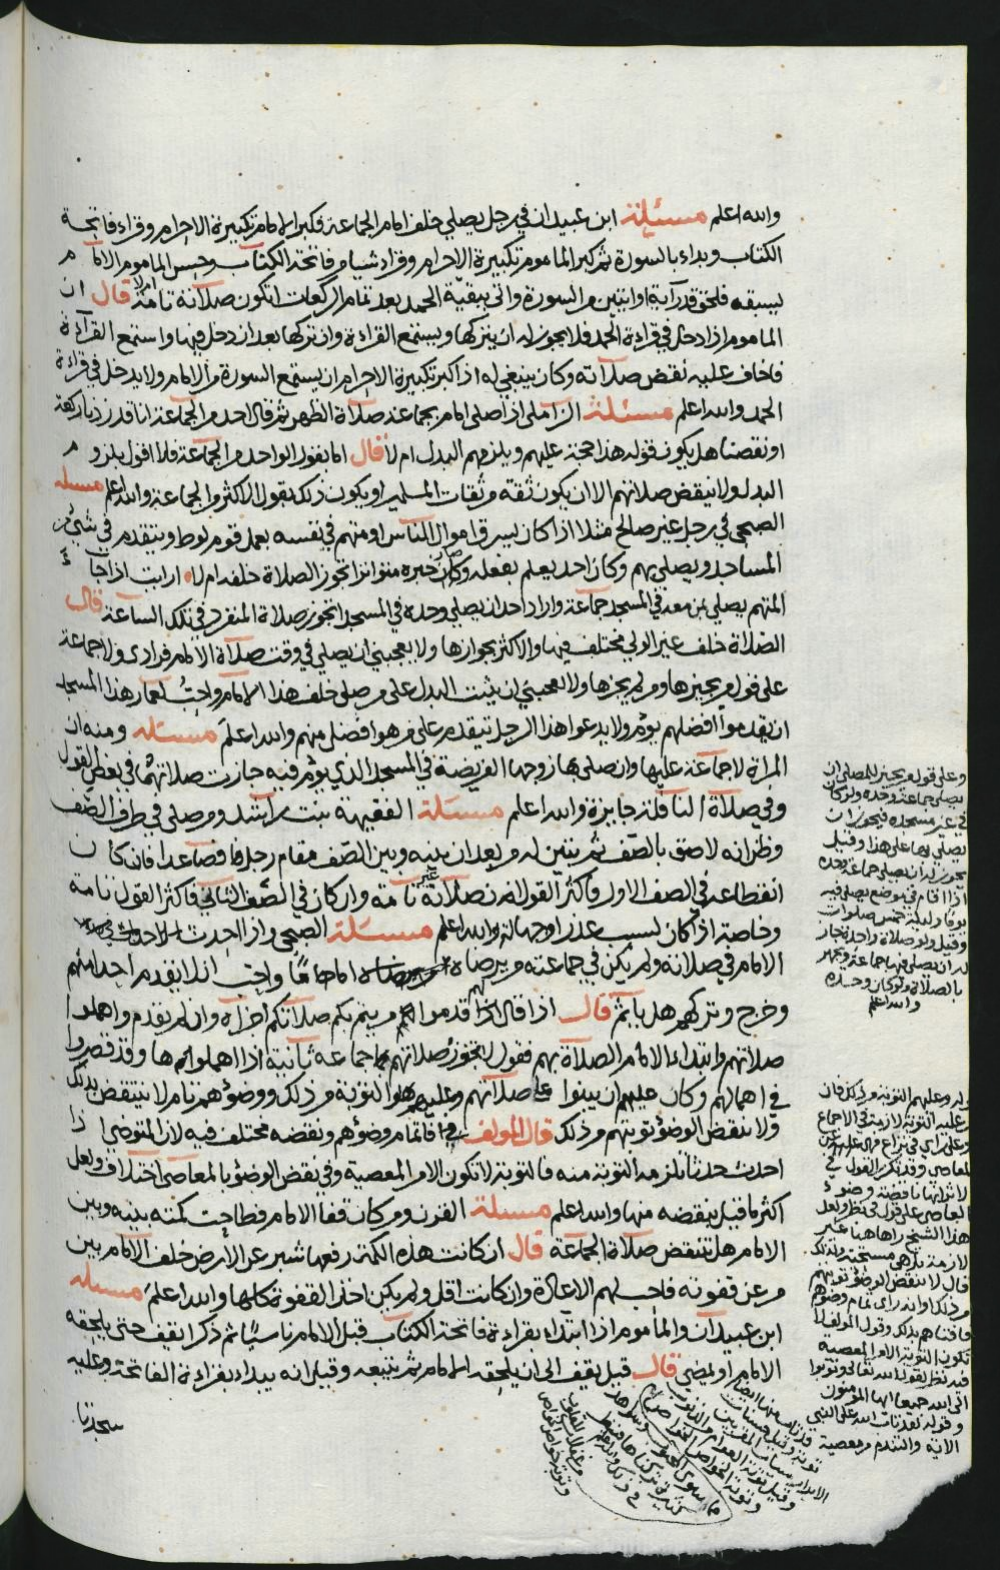 والله اعلم مسئلة ابن عبيدان في رجل يصلي خلف امام الجماعة فكبر الامام تكبيرة الاحرام وقراء فاتحة
الكتاب وبداء بالسورة ثم كبر الماموم تكبيرة الاحرام وقراء شيا من فاتحة الكتاب وحبس الماموم الامام
يسبقه فلحق قدر آية او ايتين من السورة واتى ببقية الحمد بعد تمام الركعات اتكون صلاته تامة ام لا قال ان
الماموم اذا دخل في قراءة الحمد فلا يجوز له ان يتركها ويستمع القراءة وان تركها بعد ان دخل فيها واستمع القراءة
فاخاف عليه نقض صلاته وكان ينبغي له اذا كبر تكبيرة الاحرام ان يستمع السورة من الامام ولا يدخل في قراءة
الحمد والله اعلم مسئلة الزاملي اذا صلى امام بجماعة صلاة الظهر ثم قال احد من الجماعة انا قد زدنا ركعة
او نقصنا هل يكون قوله هذا حجة عليهم ويلزمهم البدل ام لا قال اما بقول الواحد من الجماعة فلا اقول يلزم
البدل ولا نقض صلاتهم الا ان يكون ثقة من ثقات المسلمين او يكون ذلك بقول الاكثر من الجماعة والله اعلم مسئلة
الصبحي في رجل غير صالح مثلا اذا كان يسرق اموال الناس او متهم في نفسه بعمل قوم لوط ويتقدم في شيء من
المساجد ويصلي بهم وكان احد يعلم بفعله وكان خبره متواترا تجوز الصلاة خلفه ام لا ارايت اذا جاء
المتهم يصلي بمن معه في المسجد جماعة واراد احد ان يصلي وحده في المسجد اتجوز صلاة المنفرد في تلك الساعة قال
الصلاة خلف غير الولي مختلف فيها والاكثر بجوازها ولا يعجبني ان يصلي في وقت صلاة الامام فرادى ولا جماعة
على قول من يجيزها ومن لم يجزها ولا يعجبني ان يثبت البدل على من صلى خلف هذا الامام واحب لعمار هذا المسجد
ان يقدموا افضلهم يؤم ولا يدعوا هذا الرجل يتقدم على من هو افضل منهم والله اعلم مسئلة ومنه ان
المراة لا جماعة عليها وان صلى بها زوجها الفريضة في المسجد الذي يؤم فيه جازت صلاتهما في بعض القول
وفي صلاة النافلة جايزة والله اعلم مسئلة الفقيهة بنت راشد ومن صلى في طرف الصف
وظن انه لاصق بالصف ثم تبين له من بعد ان بينه وبين الصف مقام رجل فصاعدا فان كان
انقطاعه في الصف الاول فاكثر القول انه صلاته غير تامة وان كان في الصف الثاني فاكثر القول تامة
وخاصة اذا كان لسبب عذر او جهالة والله اعلم مسئلة الصبحي واذا احدث
الامام في صلاته ولم يكن في جماعته من يرضاه اماما واحب ان لا يقدم احدا منهم
وخرج وتركهم هل ياثم قال اذا قال قدموا من يتم بكم صلاتكم اجزاه وان لم يقدم واهملوا
صلاتهم وابتداء الامام الصلاة بهم فقول تجوز صلاتهم جماعة ثانية اذا اهملوها وقد قصروا
في اهمالهم وكان عليهم ان يبنوا على صلاتهم وعليهم التوبة من ذلك ووضوءهم تام لا ينتقض بذلك
ولا نقض الوضوء توبتهم من ذلك قال المؤلف فاما تمام وضوءهم ونقضه مختلف فيه لان المتوضي اذا
احدث حدثا تلزمه التوبة منه فالتوبة لا تكون الا من المعصية وفي نقض الوضوء بالمعاصي اختلاف ولعل
اكثر ما قيل بنقضه منها والله اعلم مسئلة القرن ومن كان قفا الامام وطاحت كمته بينه وبين
الامام هل تنقض صلاة الجماعة قال ان كانت هذه الكمة رفعها شبر عن الارض خلف الامام بين
من عن قفوته فاحب لهم الاعادة وان كانت اقل ولم يكن اخذ القفوة كلها والله اعلم مسئلة
ابن عبيدان والماموم اذا ابتداء بقراءة فاتحة الكتاب قبل الامام ناسيا ثم ذكر ايقف حتى يلحقه
الامام او يمضي قال قيل يقف الى ان يلحقه الامام ثم يتبعه وقيل انه يبداء بقراءة الفاتحة وعليه
وعلى قول من يجيز للمصلي ان
يصلي جماعة وحده ولو كان
في غير مسجده فيجوز ان
يصلي بها على هذا وقيل
يجوز له ان يصلي جماعة وحده
اذا اقام في موضع يصلي فيه
يوما وليلة خمس صلوات
وقيل ولو صلاة واحدة جاز
له ان يصلي فيها جماعة ويجهر
بالصلاة ولو كان وحده
والله اعلم
وعليهم التوبة من ذلك فان
عليه التوبة لازمة في الاجماع
المعاصي وقد تكرر القول في
لا انها ناقضة وضوء
العاصي على قول في نظر ولعل
هذا الشيخ راها هنا غير
لازمة بل هي مستحبة ولذلك
قال لا نقض الوضوء توبتهم
من ذلك وانه راى تمام وضوءهم
فافتاهم بذلك وقول المؤلف لا
تكون التوبة الا من المعصية
فيه نظر لقول الله تعالى وتوبوا
الى الله جميعا ايها المؤمنون
وقوله لقد تاب الله على النبي
الاية والتندم من معصية
سجدتا